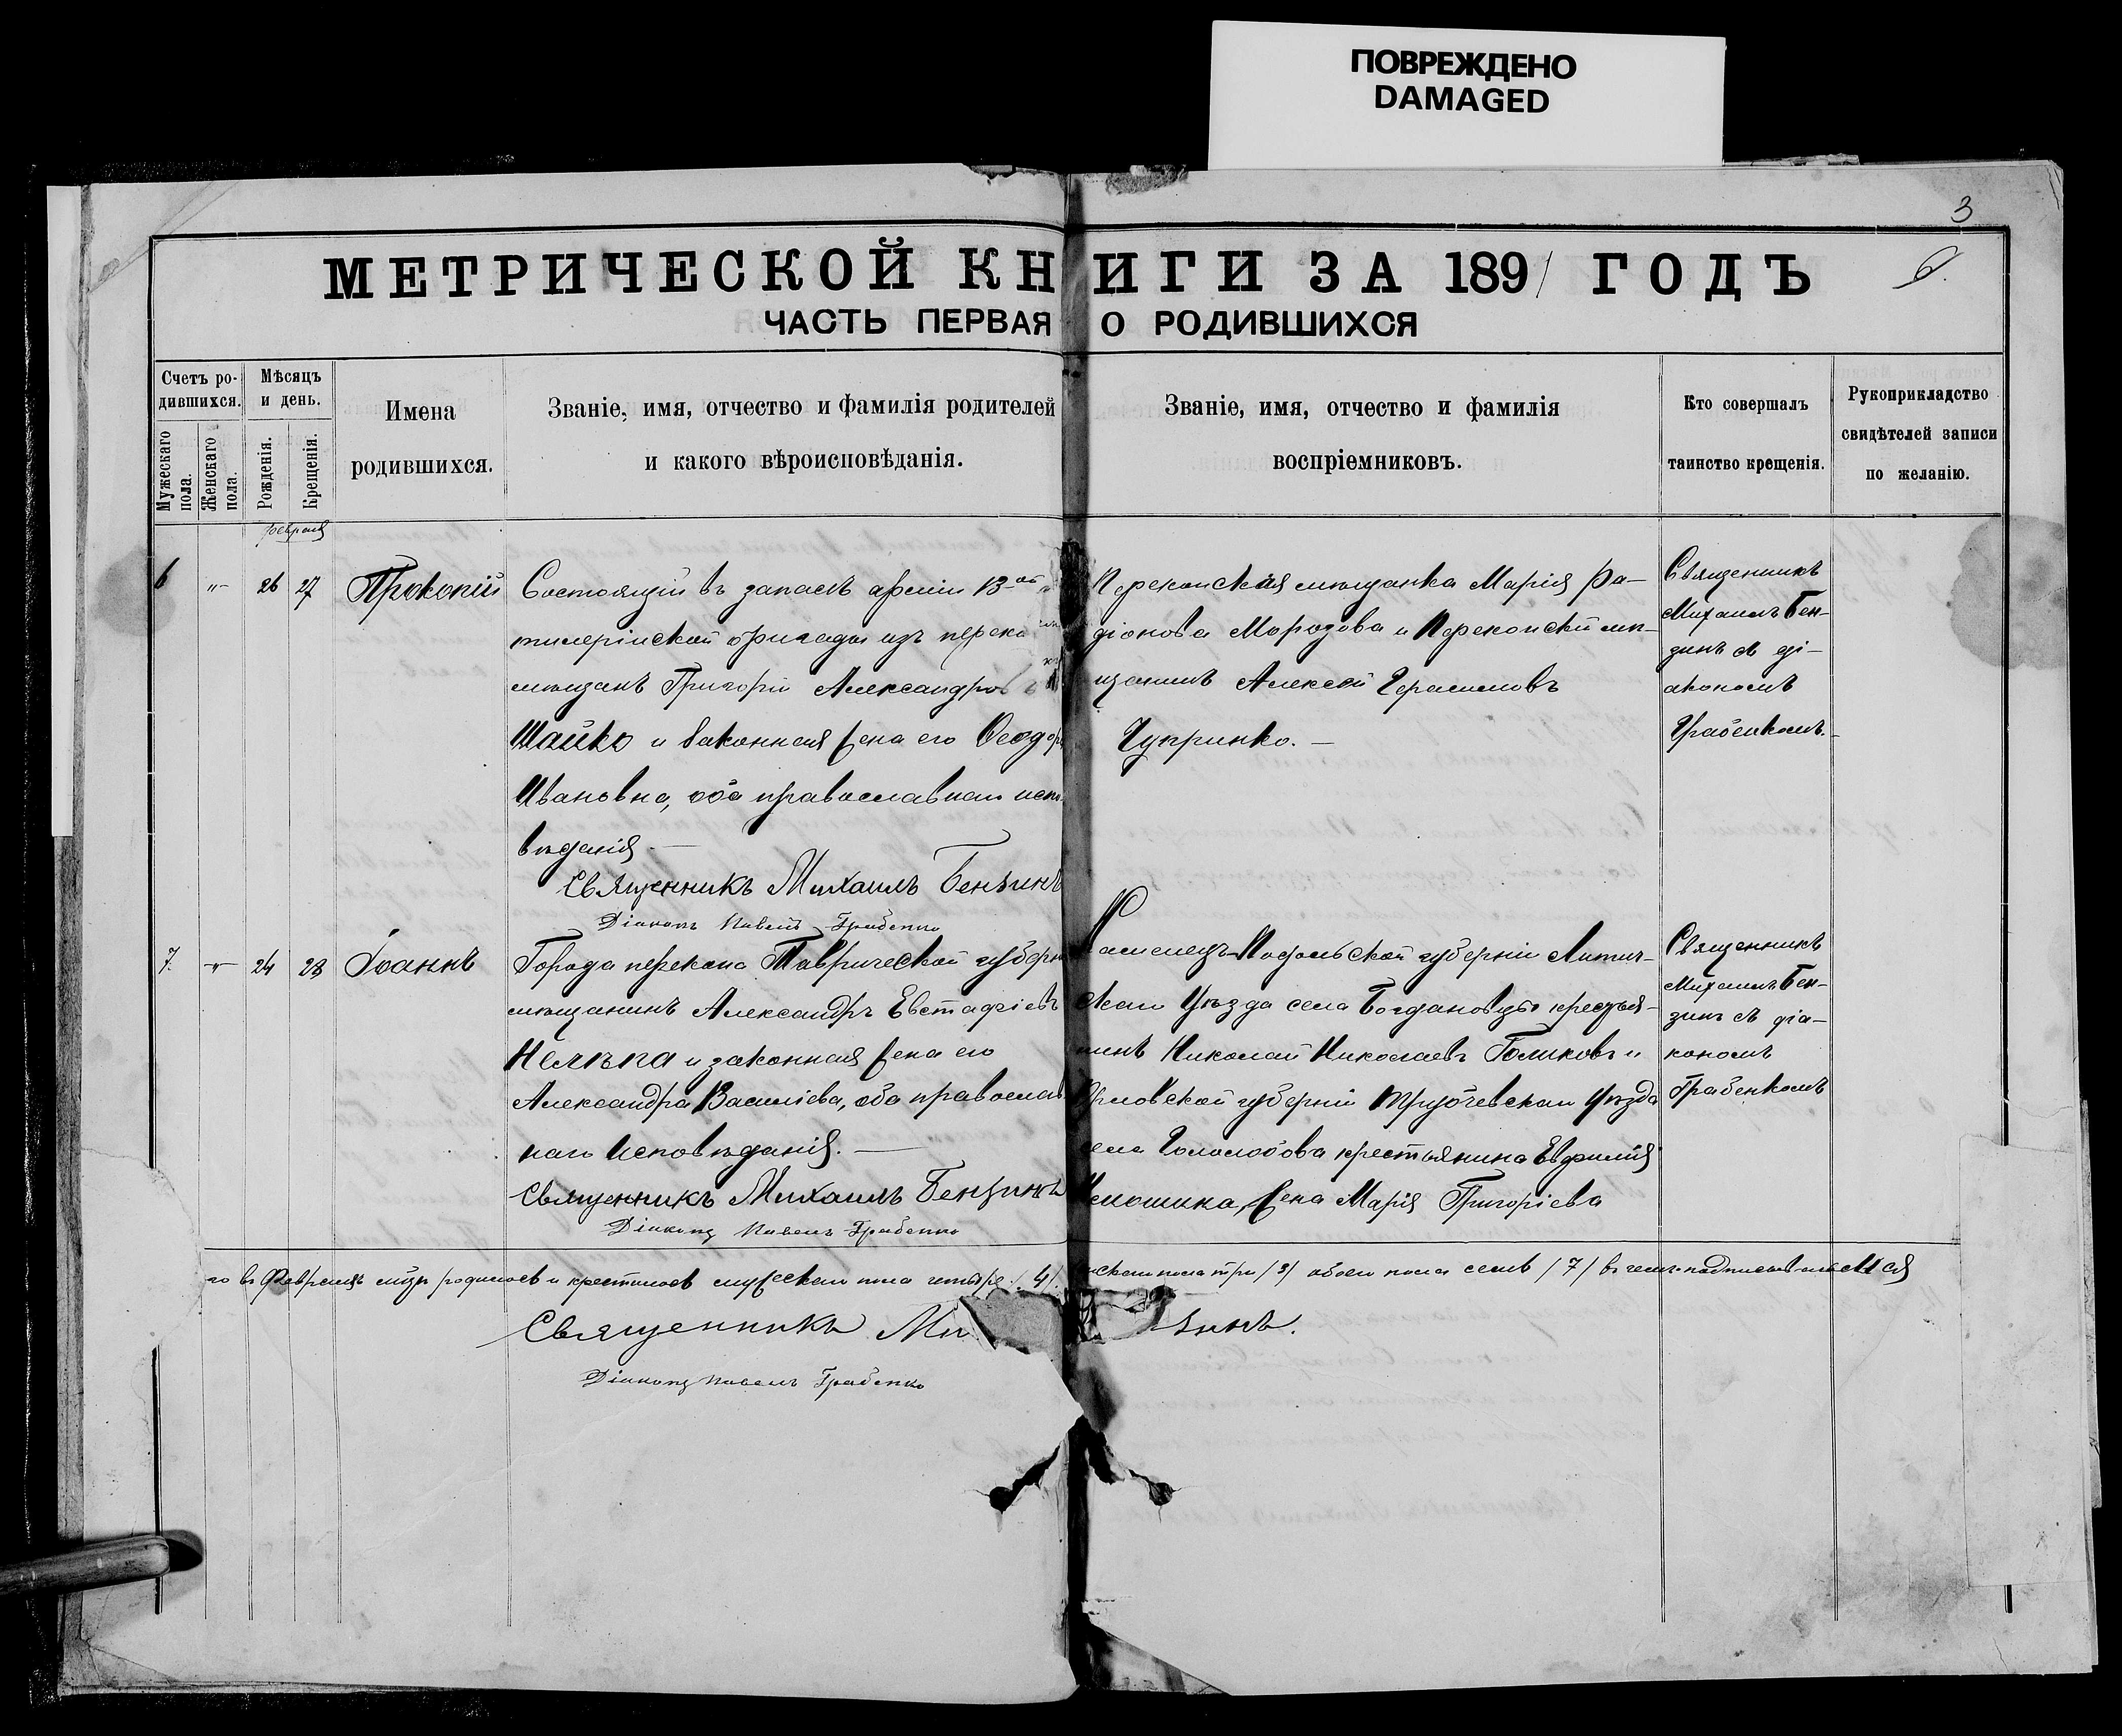 ПОВРЕЖДЕНО
DAMAGED
3
6.
МЕТРИЧЕСКОЙ КНИГИ ЗА 1891 ГОДЪ
ЧАСТЬ ПЕРВАЯ О РОДИВШИХСЯ
Счетъ ро-
дившихся.
Мужескаго пола.
Женскаго пола.
Мѣсяцъ
и день.
Рожденія.
Крещенія.
Имена
родившихся.
Званіе, имя, отчество и фамилія родителей
и какого вѣроисповѣданія.
Званіе, имя, отчество и фамилія
воспріемниковъ.
Кто совершалъ
таинство крещенія.
Рукоприкладство
свидѣтелей записи
по желанію.
Февраля
6 „ 26 27 Прокопій
Состоящій въ запасѣ арміи 13-ой
тилерійской бригады изъ переко
мѣщанъ Григорій Александровъ
Шайко и законная жена его Ѳеодор
Ивановна, оба православнаго испо
вѣданія
Священникъ Михаилъ Бензинъ
Діаконъ Павелъ Грабенко
Перекопская мѣщанка Марія Ра-
діонова Морозова и Перекопскій мѣ-
щанинъ Алексѣй Герасимовъ
Чупринко.
Священникъ
Михаилъ Бен-
зинъ съ ді-
акономъ
Грабенкомъ.
7. „ 24 28 Іоаннъ
Города перекопа Таврической губерн
мѣщанинъ Александръ Евстафіевъ
Нелѣпа и законная жена его
Александра Василіева, оба православ
наго исповѣданія.
Священникъ Михаилъ Бензинъ
Діаконъ Павелъ Грабенко
Каменецъ-Подольской губерніи Литич-
скаго Уѣзда села Богдановцы крестья-
нинъ Николай Николаевъ Голиковъ и
Орловской губерніи Трубчевскаго Уѣзда
села Гололобова крестьянина Евфимія
жена Марія Григоріева
Священникъ
Михаилъ Бен-
зинъ съ діа-
кономъ
Грабенкомъ
го въ Февралѣ мѣсяцѣ родилось и крестилось мужескаго пола четыре /4/ нскаго пола три /3/ обоего пола семь /7/ въ чемъ подписываемся
Священникъ Ми зинъ.
Діаконъ Павелъ Грабенко